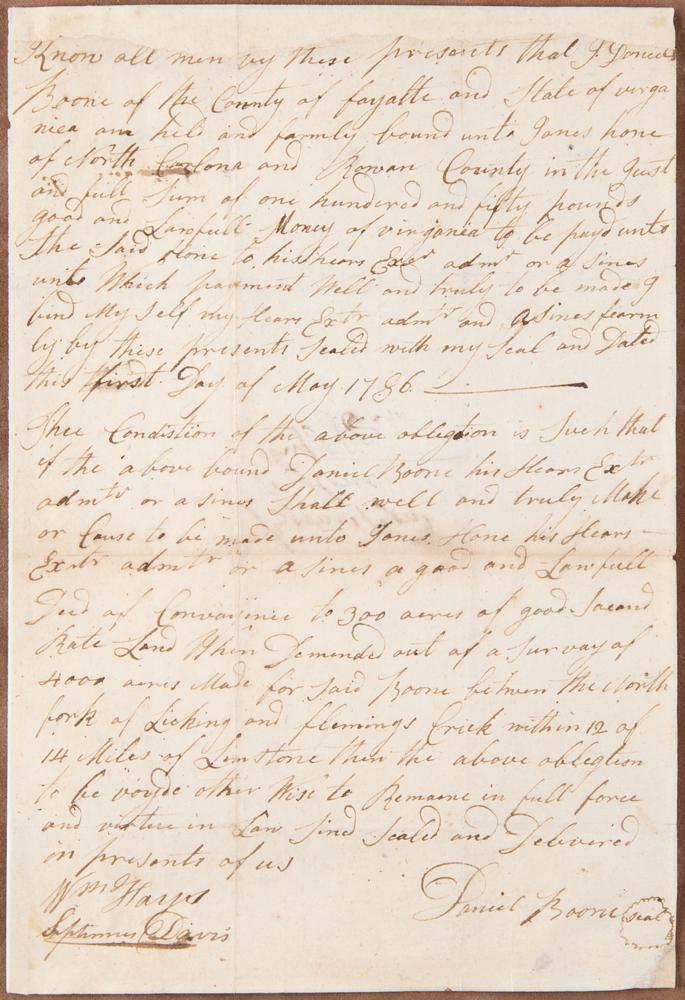 Know all men by these presents that I Daniel
Boone of the County of fayatte and State of virga
niea am held and farmly bound unto Jones hone
of North Carlona and Rowan County in the Just
and full Sum of one hundered and fifty pounds
good and Lawfull Money of virganea to be payd unto
the Said Hone to his hears Exer admtr or a sines
unto Which paement Well and truly to be made I
bind My Self my Hears Extr admtr and Asines fearm
ly by these presents Sealed with my Seal and Dated
this first Day of May 1786
Thee Condistion of the above oblegtion is Such that
if the above bound Daniel Boone his Hears Extr
admtr or a sines Shall well and truly Make
or Cause to be made unto Jones Hone his Hears
Exrtr admtr or a sines a good and Lawfull
Deed of Convaisince to 300 acres of good Sacand
Rate Land When Demended out of a Survay of
4000 acres Made for Said Boone betwen the North
fork of Licking and flemings Crick within 12 of
14 Miles of Limstone then the above oblegtion
to be voyde other Wise to Remaene in full force
and virtue in Law Sined Sealed and Delivered
in presents of us
Wm Hays
Septimus Davis
Daniel Boone
Seal